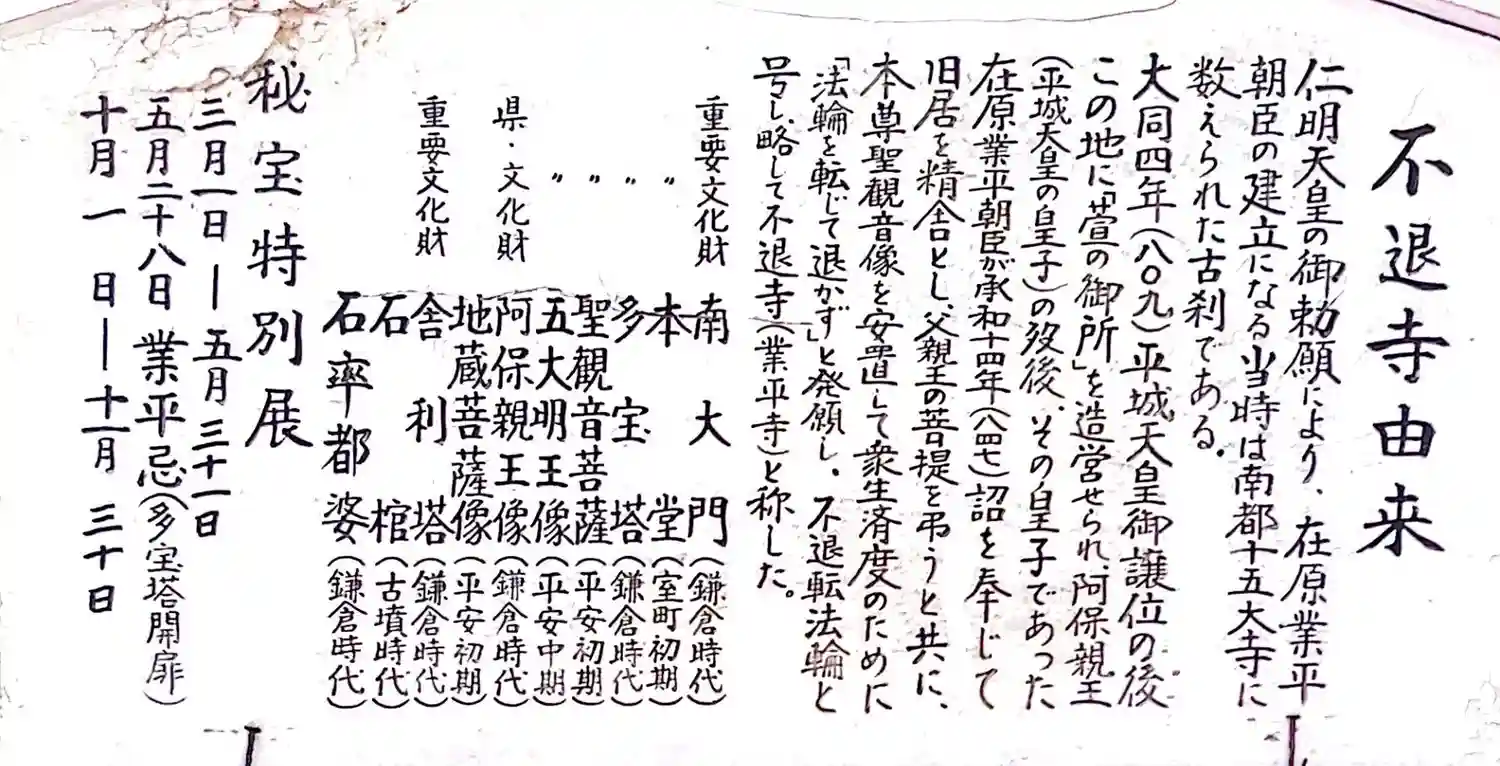 不退寺由来
仁明天皇の御勅願により、在原業平
朝臣の建立になる当時は南都十五大寺に
数えられた古刹である。
大同四年(八〇九)平城天皇御譲位の後
この地に「萱の御所」を造営せられ、阿保親王
(平城天皇の皇子)の歿後、その皇子であった
在原業平朝臣が承和十四年(八四七)詔を奉じて
旧居を精舎とし、父親王の菩提を弔うと共に、
本尊聖観音像を安置して衆生済度のために
「法輪を転じて退かず」と発願し、不退転法輪と
号し、略して不退寺(業平寺)と称した。
重要文化財 南大門(鎌倉時代)
〃 本堂(室町初期)
〃 多宝塔(鎌倉時代)
〃 聖観音菩薩(平安初期)
〃 五大明王像(平安中期)
県・文化財 阿保親王像(鎌倉時代)
地蔵菩薩像(平安初期)
重要文化財 舎利塔(鎌倉時代)
石棺(古墳時代)
石率都婆(鎌倉時代)
秘宝特別展
三月一日―五月三十一日
五月二十八日 業平忌(多宝塔開扉)
十月一日―十一月三十日